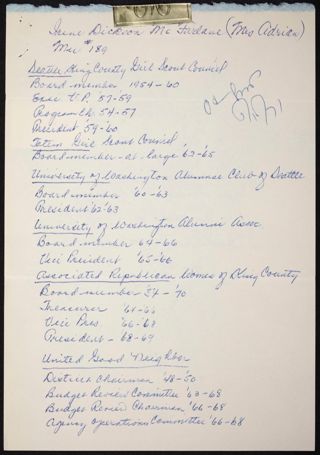 Irene Dickson Mc Farlane (Mrs Adrian)
189
Seattle King County Girl Scout Council
Board member 1954-60
Exec V.P. 57-59
Program Ch. 54-57
President 59-60
Totem Girl Scout Council
Board member-at-large '62-65
University of Washington Alumnae Club of Seattle
Board member '60-'63
President '62-'63
University of Washington Alumni Assoc.
Board member '64-'66
Vice President '65-'66
Associated Republican Women of King County
Board member '54-'70
Treasurer
Vice Pres. '66-'68
President - 68-69
United Good Neighbor
District Chairman '48-'50
Budget Review Committee '63-68
Budget Review Chairman '66-'68
Agency operations Committee '66-'68